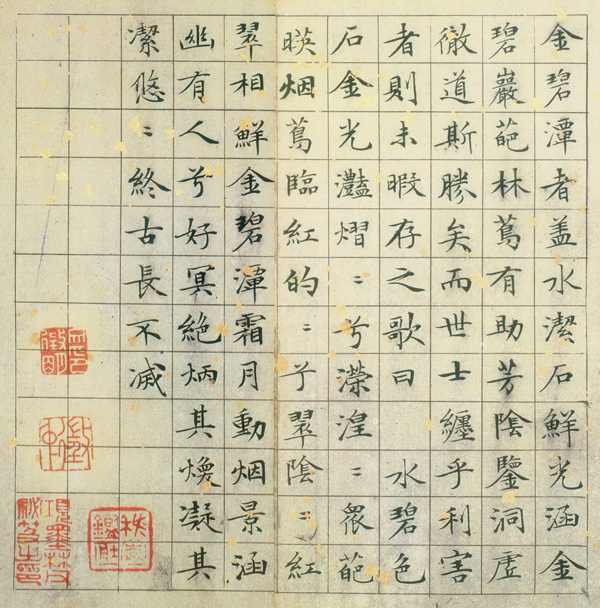 金碧潭者盖水潔石鮮光涵金
碧巖葩林蔦有助芳陰鑒洞虛
徹道斯勝矣而世士纏乎利害
者則未暇存之歌曰　水碧色
石金光灩熠〻兮濴湟〻眾葩
暎烟蔦臨紅的〻兮翠陰〻紅
翠相鮮金碧潭霜月動烟景涵
幽有人兮好冥絕炳其煥凝其
潔悠〻終古長不滅
項墨林父秘笈之印